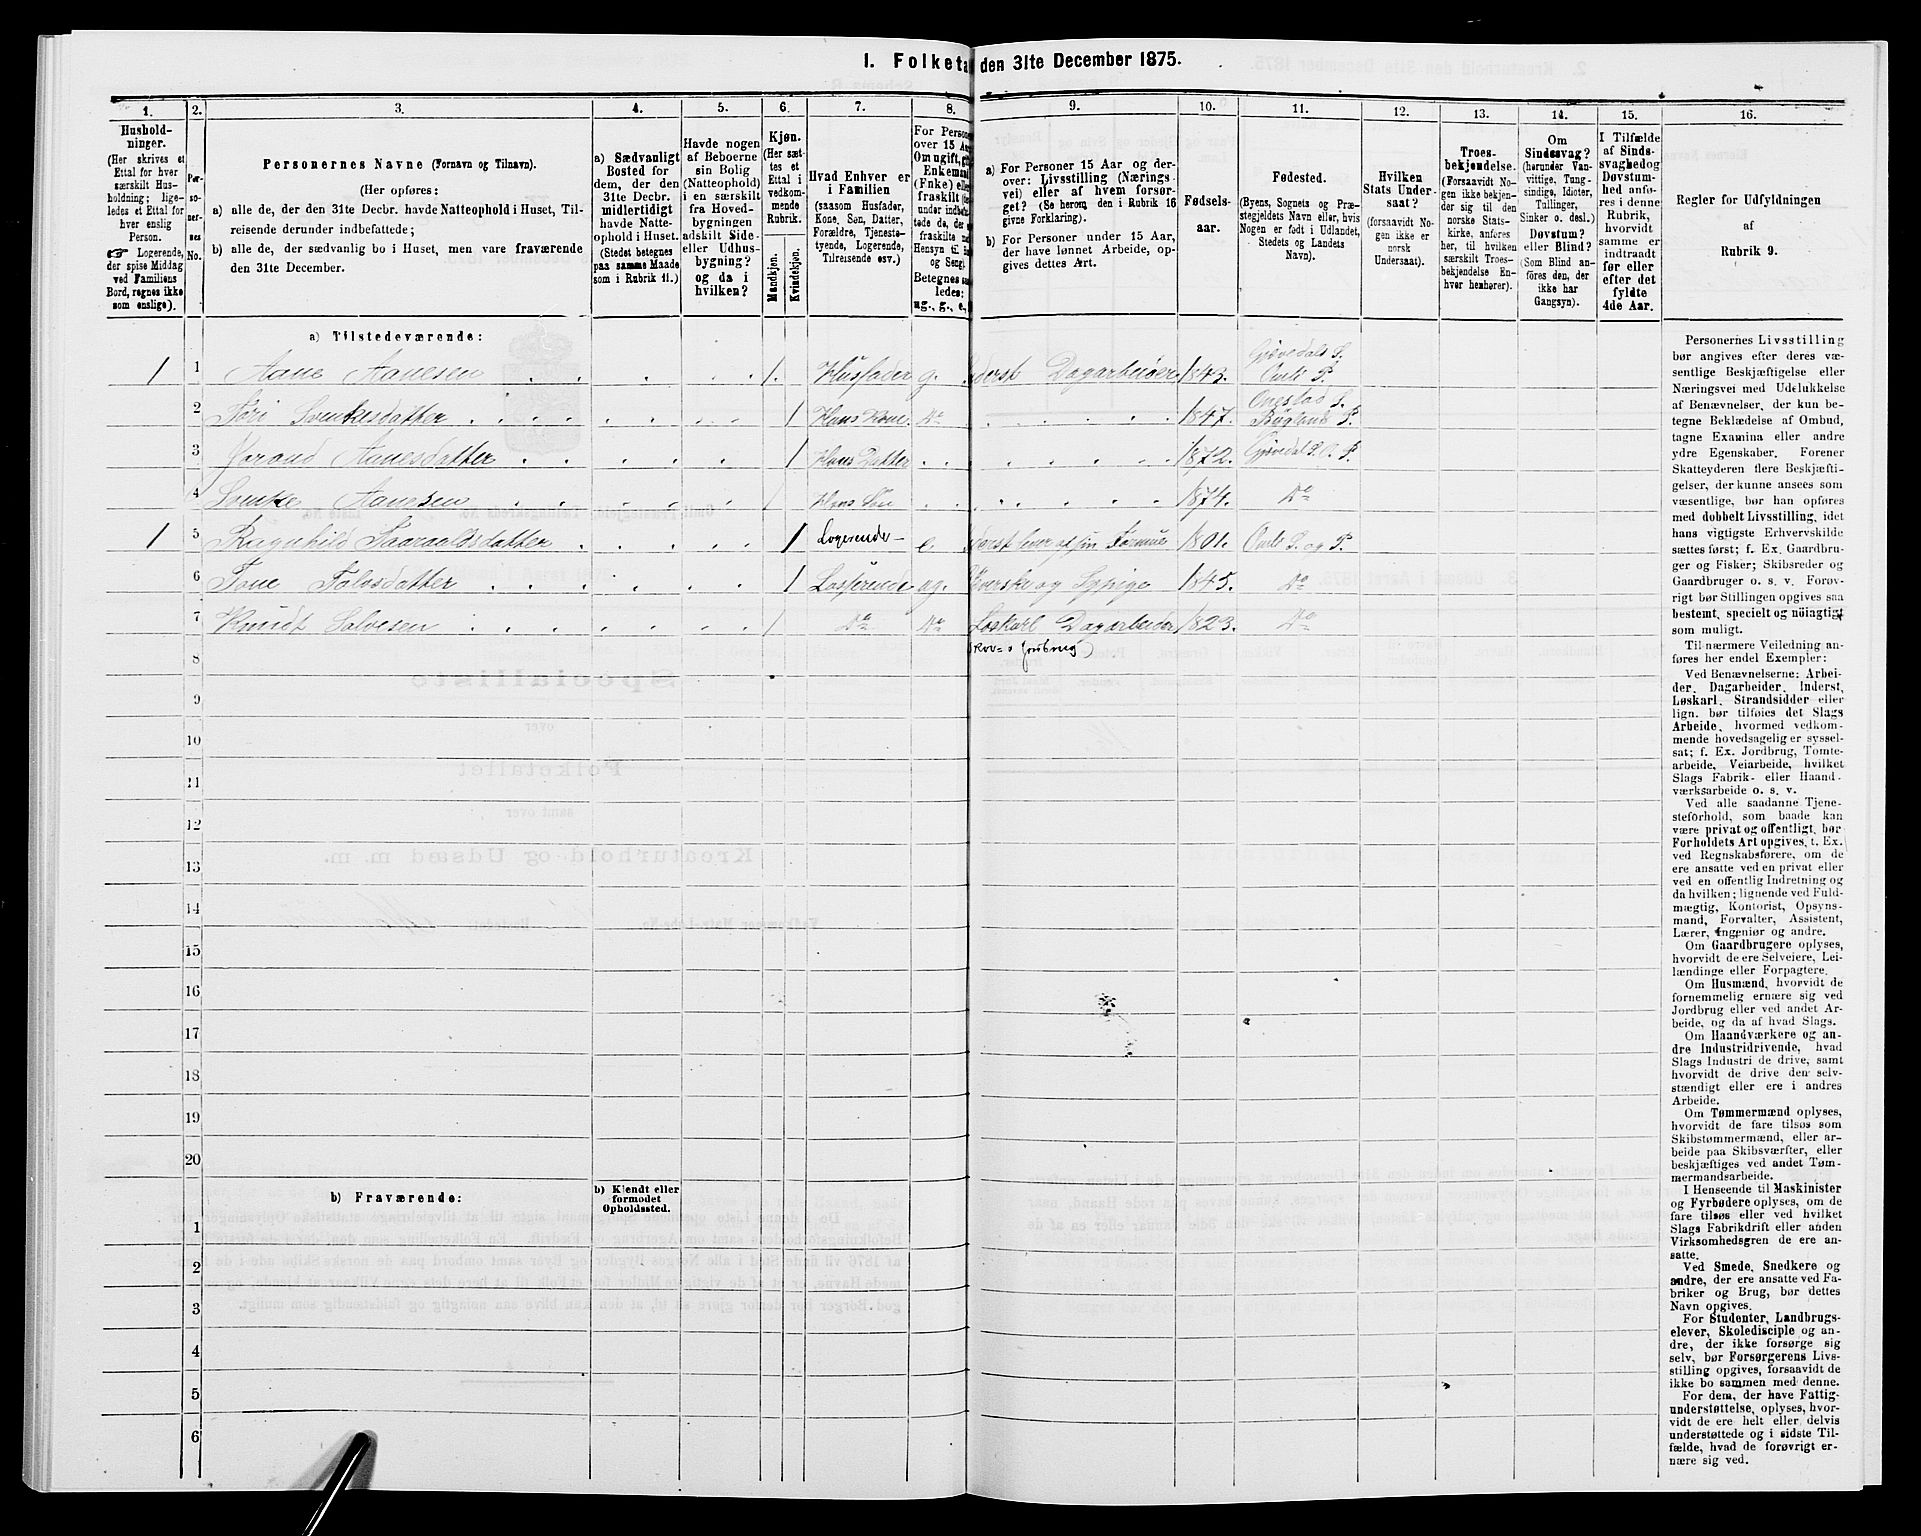 I. Folketa den 31te December 1875.
1.
Hushold-
ninger.
(Her skrives et
Ettal for hver
særskilt Hus-
holdning; lige-
ledes et Ettal for
hver enslig
Person.
☞ Logerende,
der spise Middag
ved Familiens
Bord, regnes ikke
som enslige).
2.
Per-
so-
ner-
nes
No.
3.
Personernes Navne (Fornavn og Tilnavn).
(Her opføres:
a) alle de, der den 31te Decbr. havde Natteophold i Huset, Til-
reisende derunder indbefattede;
b) alle de, der sædvanlig bo i Huset, men vare fraværende
den 31te December.
4.
a) Sædvanligt
Bosted for
dem, der den
31te Decbr.
midlertidigt
havde Natte-
ophold i Huset.
(Stedet betegnes
paa samme Maade
som i Rubrik 11.)
5.
Havde nogen
af Beboerne
sin Bolig
(Natteophold)
i en særskilt
fra Hoved-
bygningen
adskilt Side-
eller Udhus-
bygning?
og da i
hvilken?
6.
Kjøn.
(Her sæt-
tes et
Ettal i
vedkom-
mende
Rubrik.
Mandkjøn.
Kvindekjøn.
7.
Hvad Enhver er
i Familien
(saasom Husfader,
Kone, Søn, Datter,
Forældre, Tjeneste-
tyende, Logerende,
Tilreisende osv.)
8.
For Person
over 15 Aa
Om ugift, gi
Enkemand
(Enke) elle
fraskilt (s
under inde
tede de, der
fraskilte
Hensyn til
og Seng).
Betegnes sa
ledes:
ug., g., e,
9.
a) For Personer 15 Aar og der-
over: Livsstilling (Nærings-
vei) eller af hvem forsør-
get? (Se herom den i Rubrik 16
givne Forklaring).
b) For Personer under 15 Aar,
der have lønnet Arbeide, op-
gives dettes Art.
10.
Fødsels-
aar.
11.
Fødested.
(Byens, Sognets og Præ-
stegjeldets Navn eller, hvis
Nogen er født i Udlandet,
Stedets og Landets
Navn).
12.
Hvilken
Stats Under-
saat?
(forsaavidt No-
gen ikke er
norsk
Undersaat).
13.
Troes-
bekjendelse.
(Forsaavidt No-
gen ikke bekjen-
der sig til den
norske Stats-
kirke, anføres
her, til hvilken
særskilt Troes-
bekjendelse En-
hver henhører).
14.
Om
Sindssvag?
(herunder Van-
vittige, Tung-
sindige, Idioter,
Tullinger,
Sinker o. desl.)
Døvstum?
eller Blind?
(Som Blind an-
føres den, der
ikke har
Gangsyn).
15.
I Tilfælde
af Sinds-
svaghed og
Døvstum-
hed anfø-
res i denne
Rubrik,
hvorvidt
samme er
indtraadt
før eller
efter det
fyldte
4de Aar.
16.
Regler for Udfyldningen
af
Rubrik 9.
a) Tilstedeværende:
1 1 Aane Aanesen 1. Husfader g. derst Dagarbeider 1843. Gjøvedals S. Omli P.
2 Tori Svenkesdatter 1 Hans Kone. Do 1847. Onestad S. Bygland P.
3 Joraud Aanesdatter 1 Hans Datter 1872. Gjøvedal S. O. P.
4 Svenke Aanesen 1 Hans Søn 1874. Do
1 5 Ragnhild Taaraldsdatter 1 Logerende e. derst lever af sin Formue 1801. Omli S. og P.
6 Tone Tolvsdatter 1 Losjerende ug. Væverske og Syerpige 1845. Do
7 Knudt Salvesen 1 Do Do Løskarl Dagarbeider 1823. Do
8
9
10
11
12
13
14
15
16
17
18
19
20
b) Fraværende:
b) Kjendt eller
formodet
Opholdssted.
1
2
3
4
5
6
Personernes Livsstilling
bør angives efter deres væ-
sentlige Beskjæftigelse eller
Næringsvei med Udelukkelse
af Benævnelser, der kun be-
tegne Beklædelse af Ombud,
tagne Examina eller andre
ydre Egenskaber. Forener
Skatteyderen flere Beskjæfti-
gelser, der kunne ansees som
væsentlige, bør han opføres
med dobbelt Livsstilling, idet
hans vigtigste Erhvervskilde
sættes først; f. Ex. Gaardbru-
ger og Fisker; Skibsreder og
Gaardbruger o. s. v. Forøv-
rigt bør Stillingen opgives saa
bestemt, specielt og nöiagtigt
som muligt.
Til nærmere Veiledning an-
føres her endel Exempler:
Ved Benævnelserne: Arbei-
der, Dagarbeider, Inderst,
Løskarl, Strandsidder eller
lign. bør tilføies det Slags
Arbeide, hvormed vedkom-
mende hovedsagelig er syssel-
sat; f. Ex. Jordbrug, Tomte-
arbeide, Veiarbeide, hvilket
Slags Fabrik- eller Haand-
værksarbeide o. s. v.
Ved alle saadanne Tjene-
steforhold, som baade kan
være privat og offentligt, bør
Forholdets Art opgives, t. Ex.
ved Regnskabsførere, om de
ere ansatte ved en privat eller
ved en offentlig Indretning og
da hvilken; lignende ved Fuld-
mægtig, Kontorist, Opsyns-
mand, Forvalter, Assistent,
Lærer, Ingeniør og andre.
Om Gaardbrugere oplyses,
hvorvidt de ere Selveiere, Lei-
lændinge eller Forpagtere.
Om Husmænd, hvorvidt de
fornemmelig ernære sig ved
Jordbrug eller ved andet Ar-
beide, og da af hvad Slags.
Om Haandværkere og an-
dre Industridrivende, hvad
Slags Industri de drive, samt
hvorvidt de drive den selv-
stændigt eller ere i andres
Arbeide.
Om Tømmermænd oplyses,
hvorvidt de fare tilsøs som
Skibstømmermænd, eller ar-
beide paa Skibsværfter, eller
beskjæftiges ved andet Tøm-
mermandsarbeide.
I Henseende til Maskinister
og Fyrbødere oplyses, om de
fare tilsøs eller ved hvilket
Slags Fabrikdrift eller anden
Virksomhedsgren de ere an-
satte.
Ved Smede, Snedkere og
andre, der ere ansatte ved Fa-
briker og Brug, bør dettes
Navn opgives.
For Studenter, Landbrugs-
elever, Skoledisciple og an-
dre, der ikke forsørge sig
selv, bør Forsørgerens Livs-
stilling opgives, forsaavidt de
ikke bo sammen med denne.
For dem, der have Fattig-
understøttelse, oplyses, hvor-
vidt de ere helt eller delvis
understøttede og i sidste Til-
fælde, hvad de forøvrigt er-
nære sig ved.